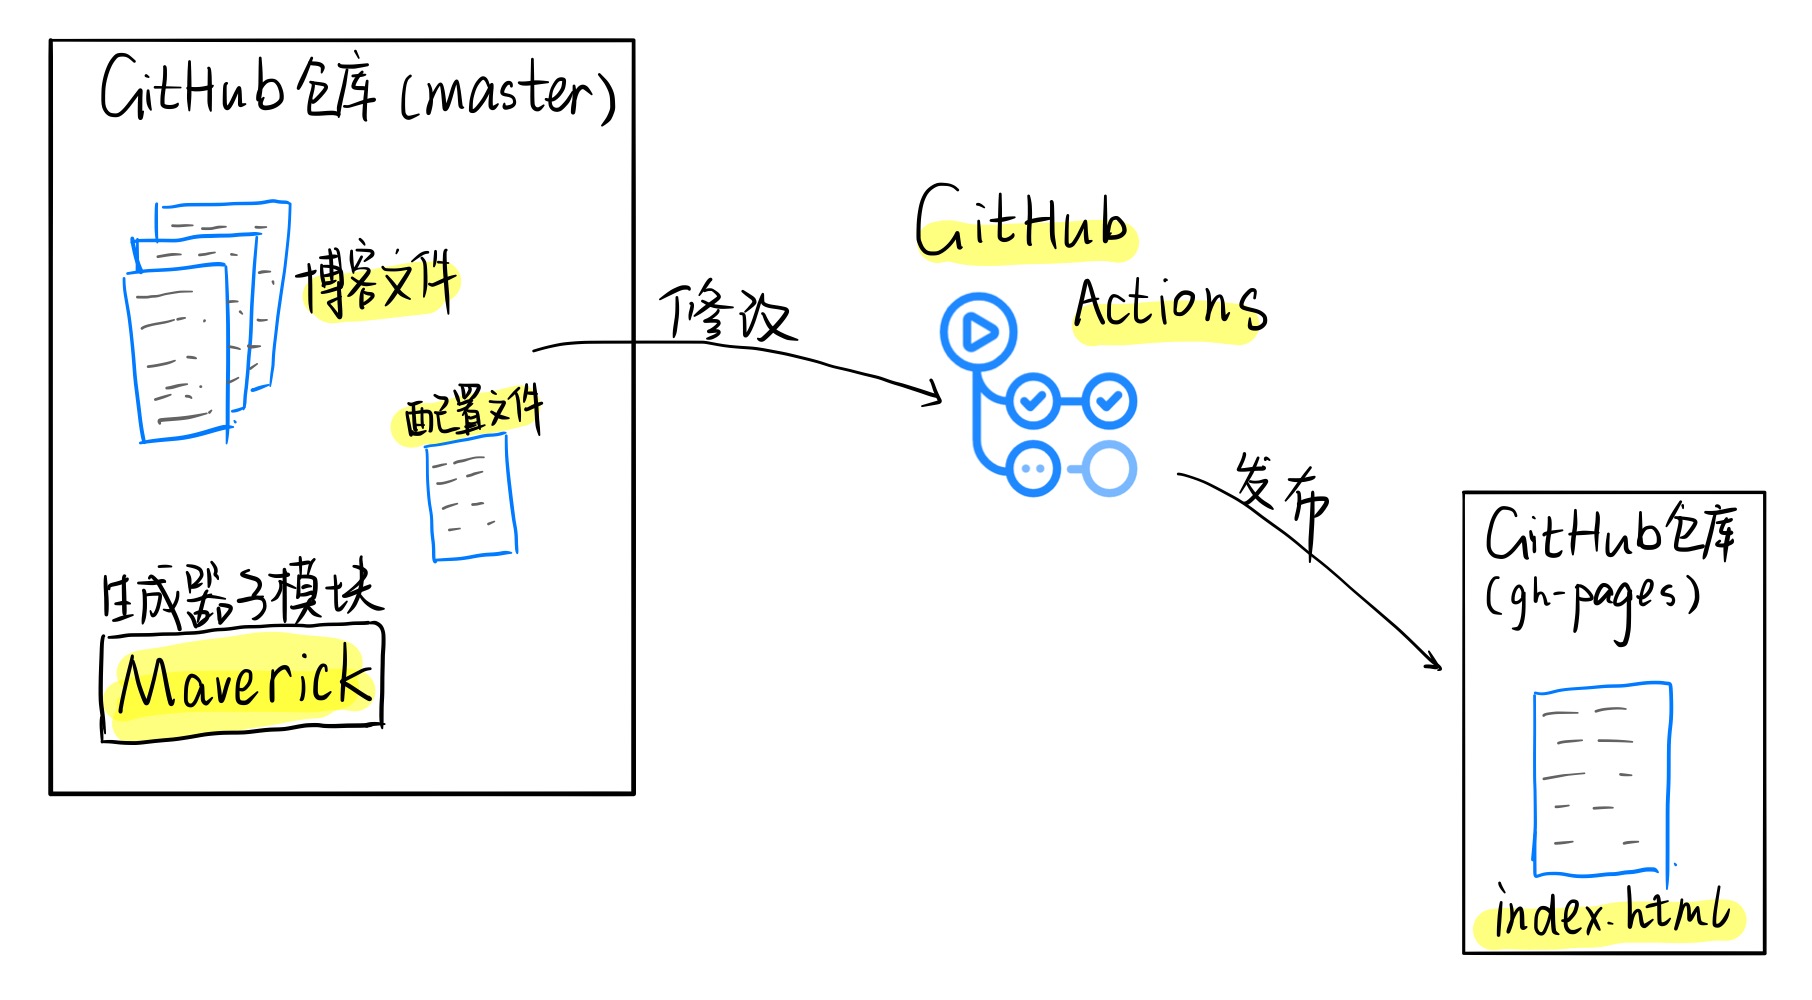 GitHub仓库(master)
博客文件
配置文件
生成器子模块
Maverick
修改
GitHub
Actions
发布
GitHub仓库
(gh-pages)
index.html